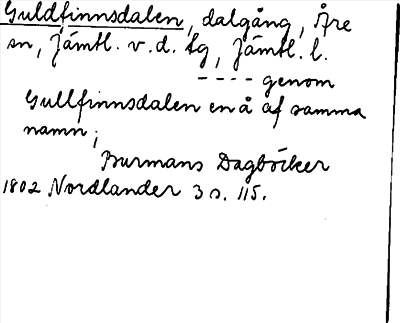 Guldfinnsdalen, dalgång, Åre
sn, Jämtl. v. d. tg, Jämtl. l.
---- genom
Gullfinnsdalen en å af samma
namn;
Burmans Dagböcker
1802 Nordlander 3 s. 115.